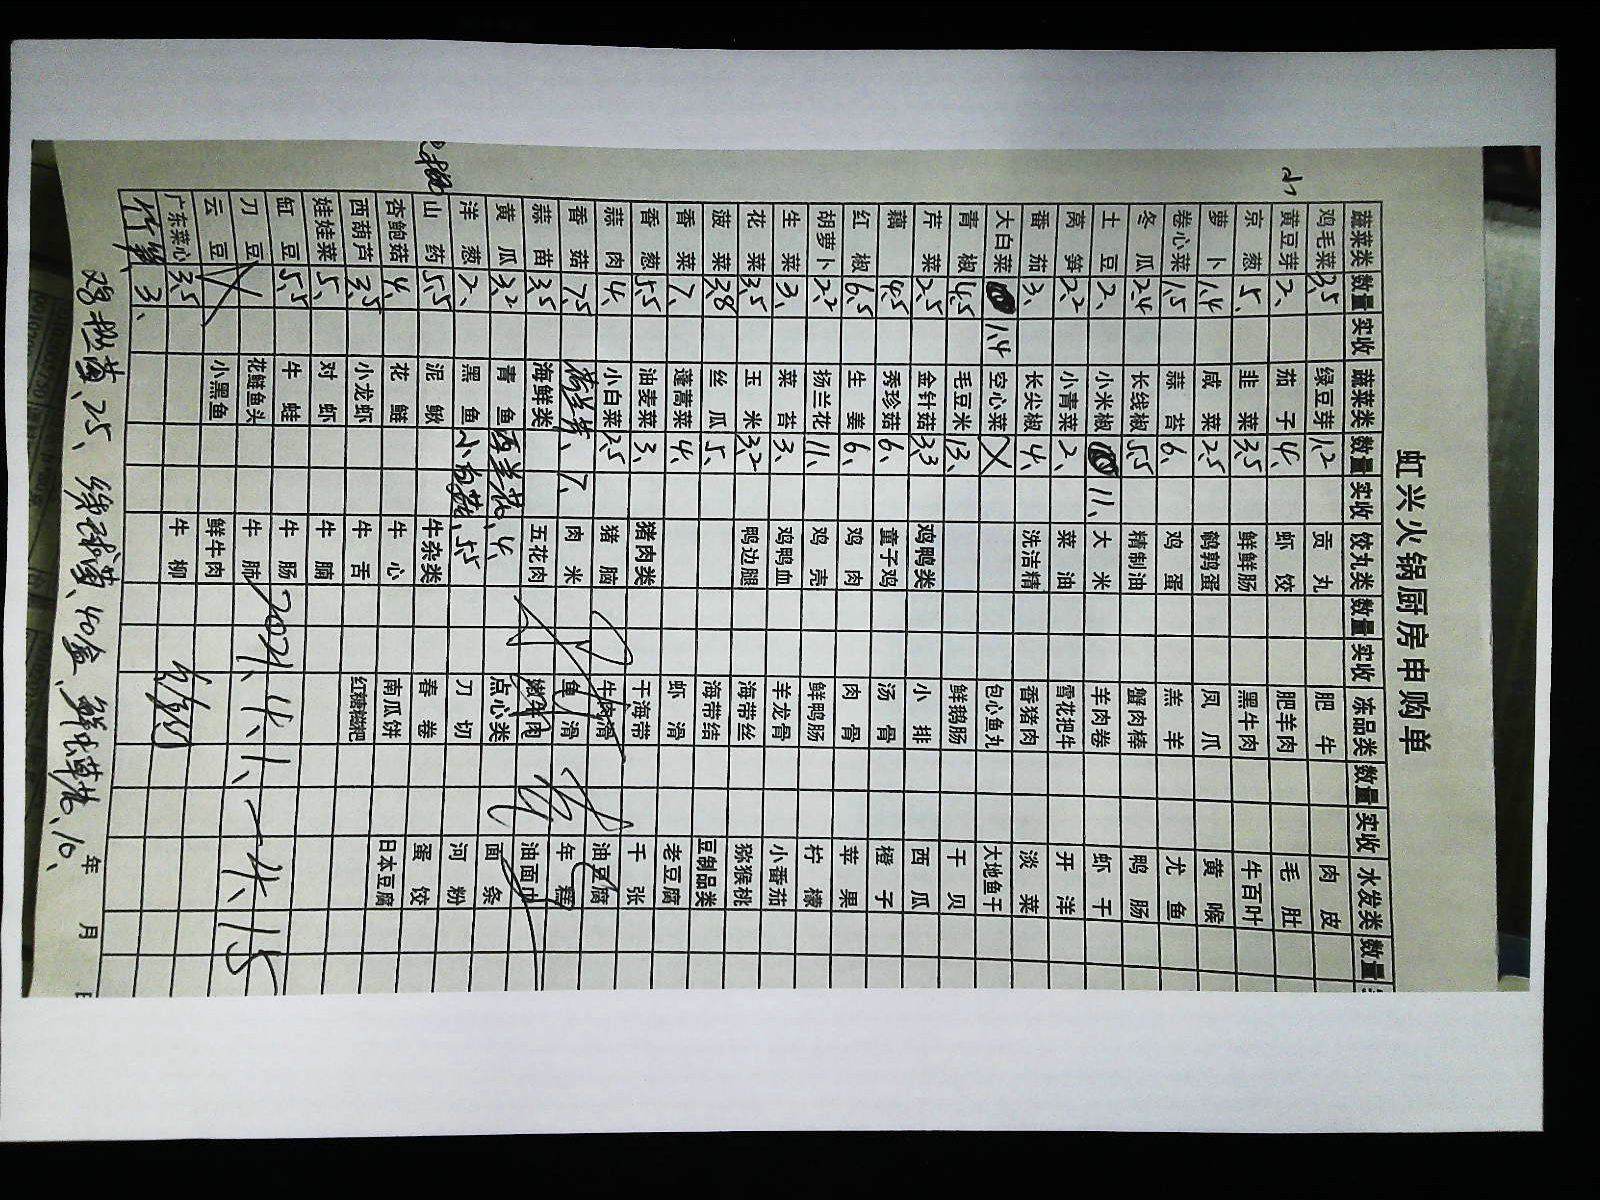 虹兴火锅厨房申购单
蔬菜类 数量 实收 蔬菜类 数量 实收 饺丸类 数量 实收 冻品类 数量 实收 水发类 数量
鸡毛菜 3.5 绿豆芽 1.2 贡丸 肥牛 肉皮
黄豆芽 2、 茄子 4、 虾饺 肥羊肉 毛肚
京葱 5、 韭菜 3.5 鲜鲜肠 黑牛肉 牛百叶
萝卜 1.4 咸菜 2.5 鹌鹑蛋 凤爪 黄喉
卷心菜 1.5 蒜苔 6、 鸡蛋 羔羊 尤鱼
冬瓜 2.4 长线椒 5.5 精制油 蟹肉棒 鸭肠
土豆 2、 小米椒 11、 大米 羊肉卷 虾干
莴笋 2.2 小青菜 2、 菜油 雪花把牛 开洋
番茄 3、 长尖椒 4、 洗洁精 香猪肉 淡菜
大白菜 1.4 空心菜 包心鱼丸 大地鱼干
青椒 4.5 毛豆米 13、 鲜鹅肠 干贝
芹菜 2.5 金针菇 3.3 鸡鸭类 小排 西瓜
藕 4.5 秀珍菇 6、 童子鸡 汤骨 橙子
红椒 6.5 生姜 6、 鸡肉 肉骨 苹果
胡萝卜 2.2 杨兰花 11、 鸡壳 鲜鸭肠 柠檬
生菜 3、 菜苔 3、 鸡鸭血 羊龙骨 小番茄
花菜 3.5 玉米 3.2 鸭边腿 海带丝 猕猴桃
菠菜 3.8 丝瓜 5、 海带结 豆制品类
香菜 7、 蓬蒿菜 4、 虾滑 老豆腐
香葱 5.5 油麦菜 3、 猪肉类 干海带 千张
蒜肉 4、 小白菜 2.5 猪脑 牛肉滑 油豆腐
香菇 7.5 7、 肉米 鱼滑 年糕
蒜苗 3.5 海鲜类 五花肉 嫩牛肉 油面巾
黄瓜 3.2 青鱼 西兰花、4、 点心类 面条
洋葱 2、 黑鱼 5.5 牛杂类 刀切 河粉
山药 5.5 泥鳅 牛心 春卷 蛋饺
杏鲍菇 4、 花鲢 牛舌 南瓜饼 日本豆腐
西葫芦 3.5 小龙虾 牛腩 红糖糍粑
娃娃菜 5、 对虾 牛肠
缸豆 5.5 牛蛙 牛肺
刀豆 花鲢鱼头 鲜牛肉
云豆 小黑鱼 牛柳
广东菜心 3.5
3、
2021、4、1、
年 月